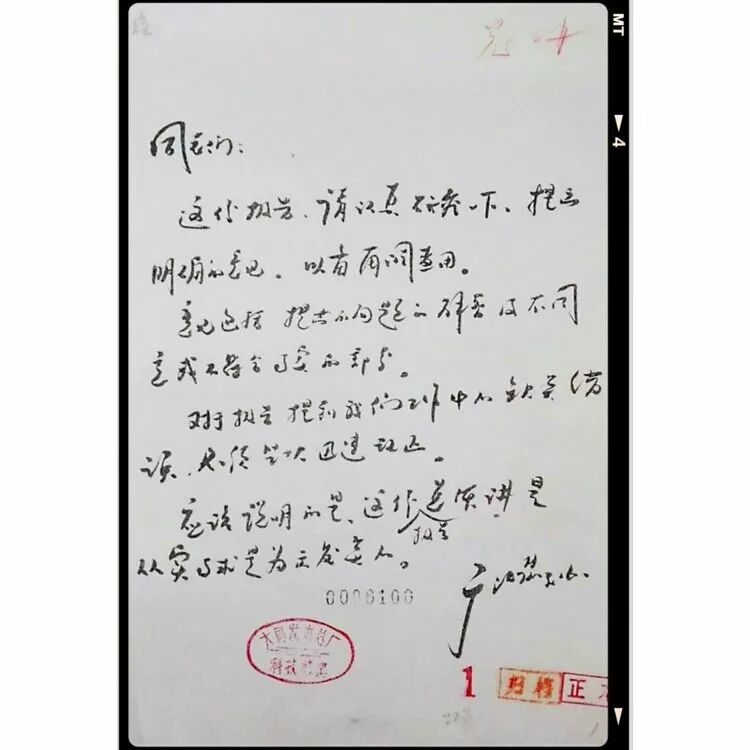 MT
4
同志们：
这份报告，请认真研究一下，提出
明确的意见，以备再问查用。
意见包括提出的问题的解答及不同
意或不符合事实的部分。
对于报告提到我们工作中的缺点错
误，必须坚决迅速改正。
应该说明的是，这份报告总的讲是
从实事求是为出发点的。
0006100
大同发电总厂
科技档案
1
归档
正